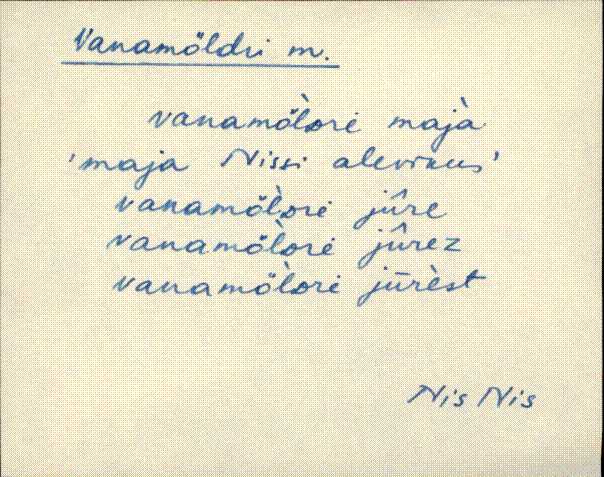 Vanamöldri m.
vanamö̀lᴅri majà
'maja Nissi alevikus'
vanamö̀lᴅri jûre
vanamö̀lᴅri jûrez
vanamö̀lᴅri jūrèst
Nis Nis